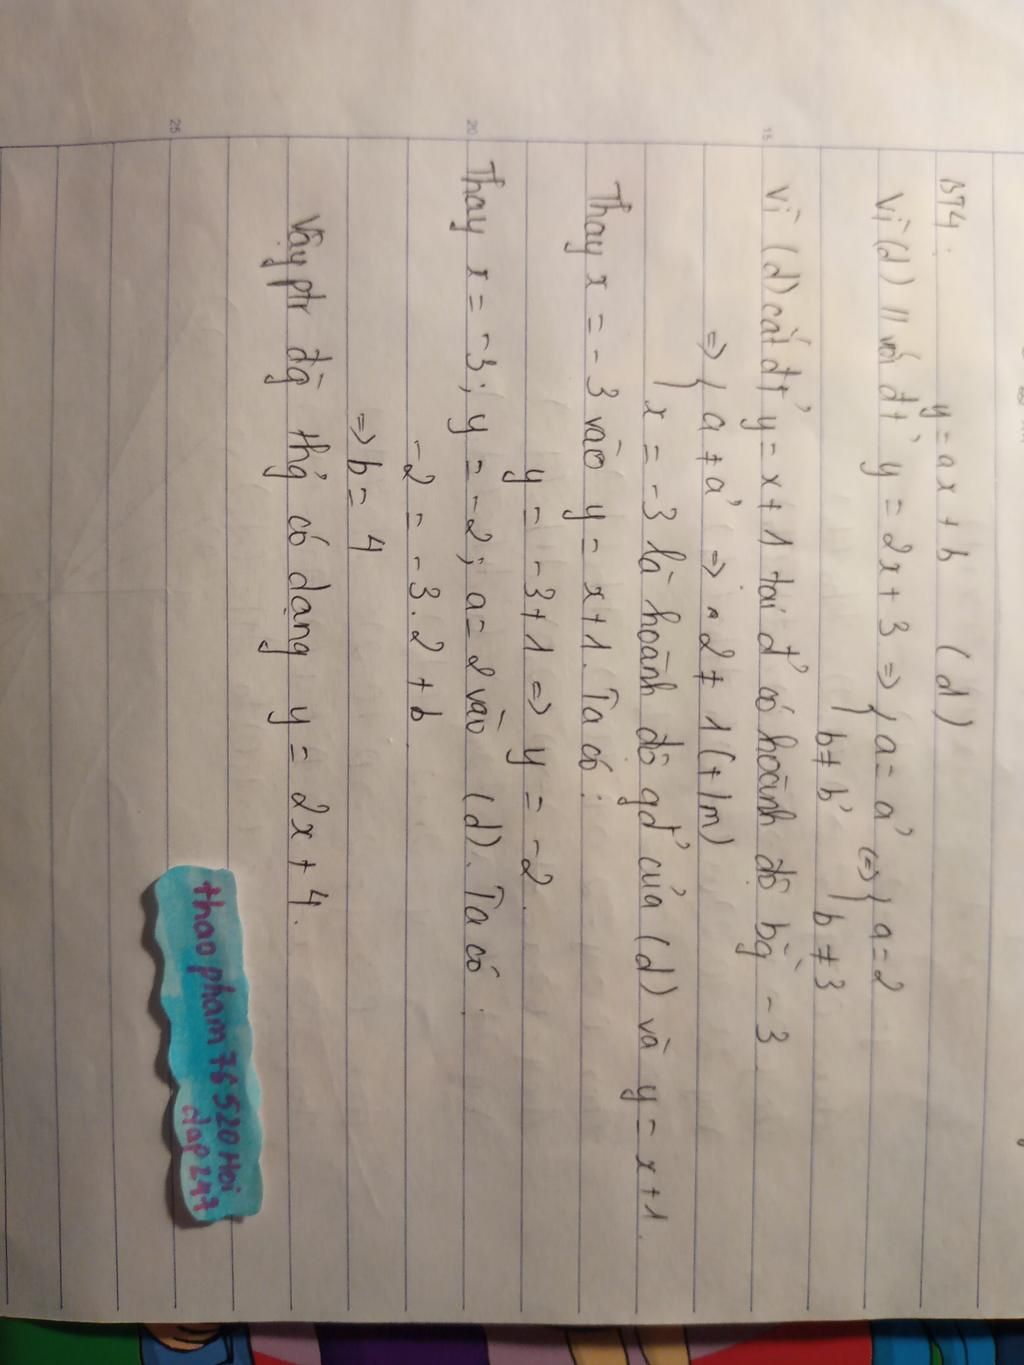 BT4.
y = ax + b (d)
Vì (d) // với đt' y = 2x + 3 => { a = a' <=> { a = 2
b ≠ b' b ≠ 3
Vì (d) cắt đt' y = x + 1 tại đ' có hoành độ bg̀ - 3
=> { a ≠ a' => 2 ≠ 1 (t/m)
x = -3 là hoành độ gđ' của (d) và y = x+1.
Thay x = - 3 vào y = x+1. Ta có:
y = -3+1 => y = -2.
Thay x = -3; y = -2; a = 2 vào (d). Ta có:
-2 = -3.2 + b
=> b = 4
Vậy ptr đg̀ thg̉ có dạng y = 2x + 4.
thao pham 76520 Hoi
dap 247
15
20
25